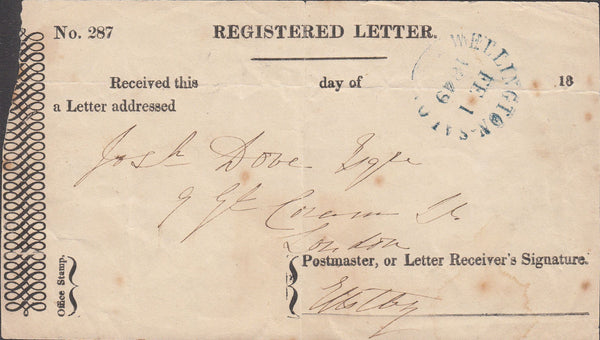 No. 287
REGISTERED LETTER.
WELLINGTON-SALOP
FE 1
1849
Received this day of 18
a Letter addressed
Josh Dove Esqre
9 Gt Coram St
London
Office Stamp.
Postmaster, or Letter Receiver's Signature.